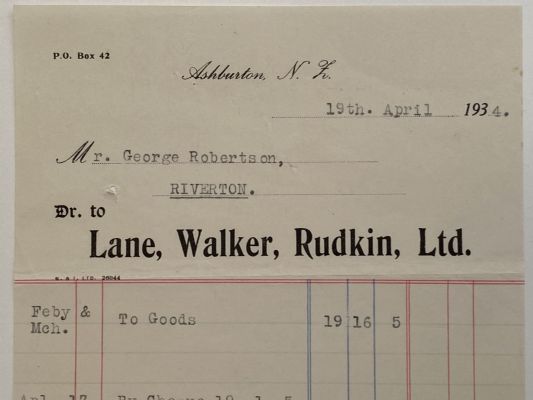 P.O. Box 42
Ashburton, N. Z.
19th. April 1934.
Mr. George Robertson,
RIVERTON.
Dr. to
Lane, Walker, Rudkin, Ltd.
LTD. 26844
Feby &
Mch. To Goods 19 16 5
Apl. 17 By Cheque 19 1 5